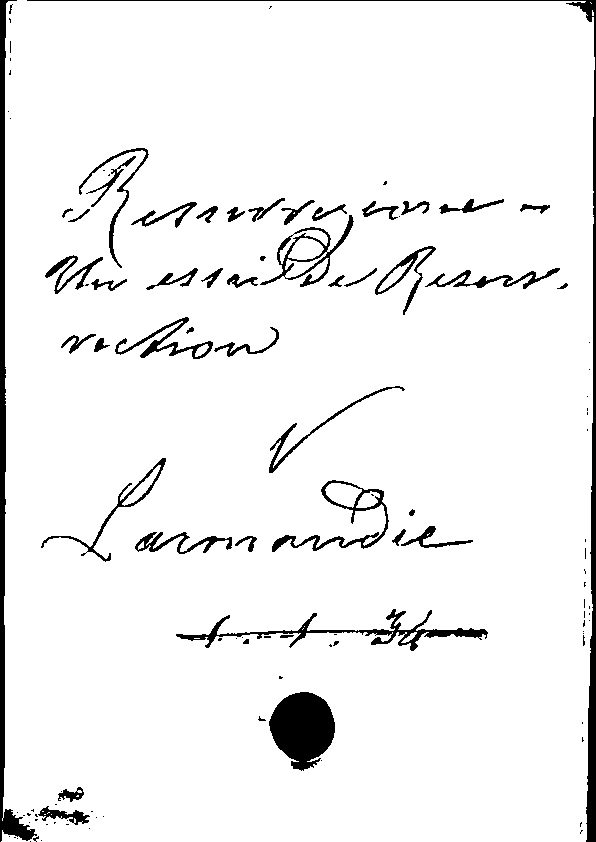 Resurrezione =
Un essai de Resur-
rection
V
Larmandie
1. 1. 34